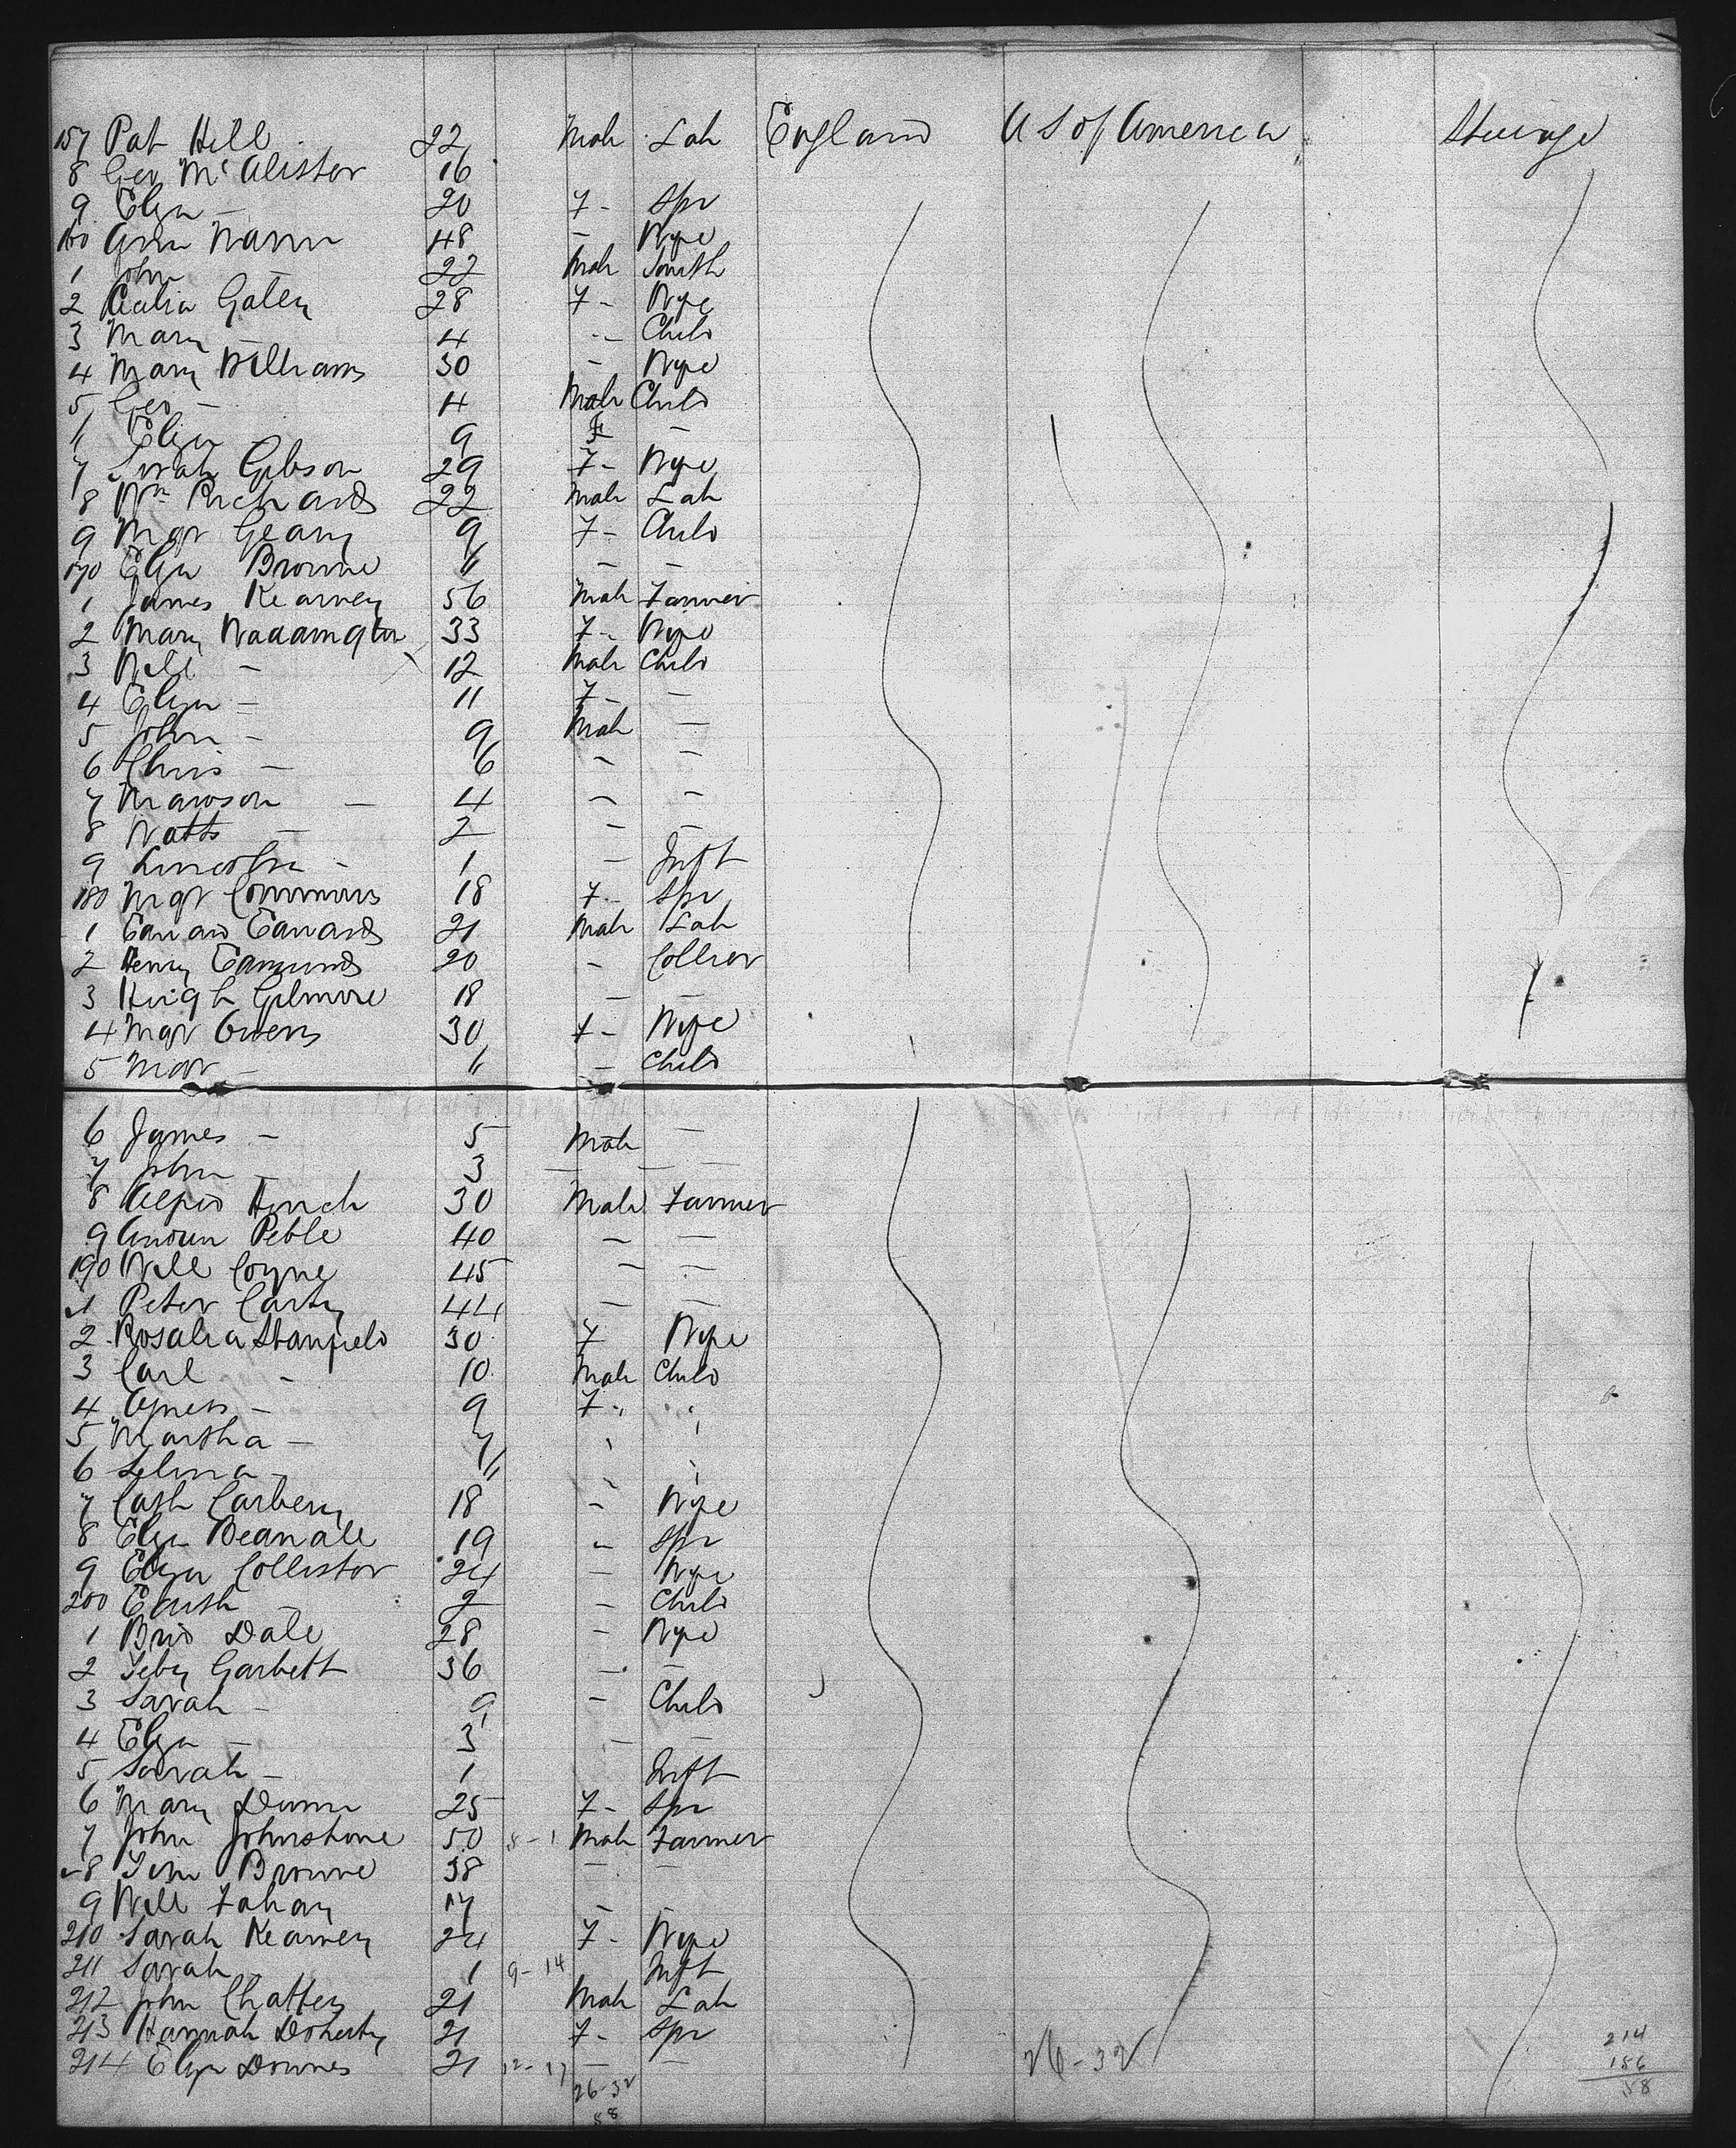 157 Pat Hill 22 Male Lab England U S of America Steerage
8 Geo McAlister 16
9 Eliza - 20 F - Spr
160 Ann Mann 48 - Wife
1 John - 22 Male Smith
2 Celia Galey 28 F - Wife
3 Mary - 4 - Child
4 Mary Williams 30 - Wife
5 Geo - 4 Male Child
6 Eliza - 9 F -
7 Sarah Gibson 29 F - Wife
8 Wm Richards 22 Male Lab
9 Mgr Geary 9 F - Child
170 Eliza Browne 6 - -
1 James Kearney 56 Male Farmer
2 Mary Waddington 33 F - Wife
3 Will - 12 Male Child
4 Eliza - 11 F - -
5 John - 9 Male -
6 Chris - 6 - -
7 Mawson - 4 - -
8 Watts - 2 - -
9 Lincoln - 1 - Inft
180 Mgr Commons 18 F - Spr
1 Edward Edwards 21 Male Lab
2 Henry Edmunds 20 - Collier
3 Hugh Gilmore 18 - -
4 Mgr Owens 30 F - Wife
5 Mgr - 6 - Child
6 James - 5 Male -
7 John - 3 - - -
8 Alfred Hinch 30 Male Farmer
9 Andrew Peble 40 - -
190 Will Coyne 45 - -
1 Peter Carty 44 - -
2 Rosalia Stanfield 30 F Wife
3 Carl - 10 Male Child
4 Agness - 9 F - "
5 Martha - 7 " "
6 Selina - 6 " "
7 Cath Carbery 18 - Wife
8 Eliza 19 - Spr
9 Eliza Collistor 24 - Wife
200 Edith - 2 - Child
1 Brid Dale 28 - Wife
2 Garbett 36 - -
3 Sarah - 9 - Child
4 Eliza - 3 - -
5 Sarah - 1 Inft
6 Mary Dunn 25 F - Spr
7 John Johnstone 50 8 - 1 Male Farmer
8 Tim Browne 38 - -
9 Will Fahay 17 -
210 Sarah Kearney 24 F - Wife
211 Sarah 1 9 - 14 Inft
212 John Chatters 21 Male Lab
213 Hannah Doherty 21 F - Spr
214 Eliza Downes 21 12 - 17 - - 26 - 32
26-32
58
214
156
58